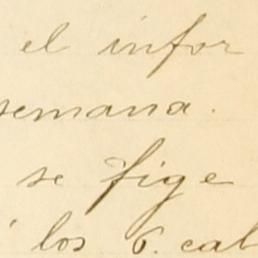 el infor
semana.
se fige
los 6. cal